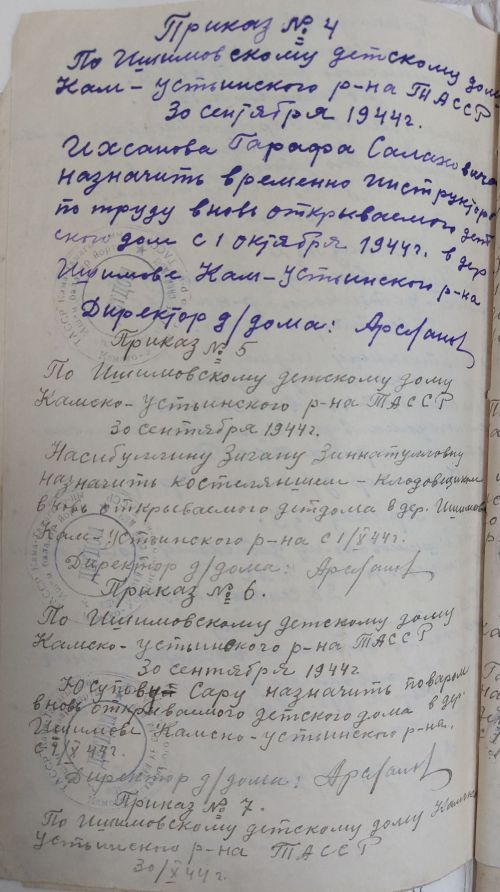 Приказ № 4
По Ишимовскому детскому дому
Кам-Устьинского р-на ТАССР
30 сентября 1944г.
Ихсанова Гарафа Салаховича
назначить временно инструктором
по труду вновь открываемого дет
ского дом с 1 октября 1944г. в дер.
Ишимове Кам-Устьинского р-на
Директор д/дома: Арсланов
Приказ № 5
По Ишимовскому детскому дому
Камско-Устьинского р-на ТАССР
30 сентября 1944г.
Насибуллину Зигану Зиннатулловну
назначить костеляншем - кладовщиком
вновь открываемого детдома в дер. Ишимова
Кам-Устьинского р-на с 1/X 44г.
Директор д/дома: Арсланов
Приказ № 6.
По Ишимовскому детскому дому
Камско-устьинского р-на ТАССР
30 сентября 1944г
Юсупову Сару назначить поваром
вновь открываемого детского дома в дер.
Ишимове Камско-устьинского р-на.
с 1/X 44г.
Директор д/дома: Арсланов
Приказ № 7.
По Ишимовскому детскому дому Камско
Устьинского р-на ТАССР
30/X 44г.